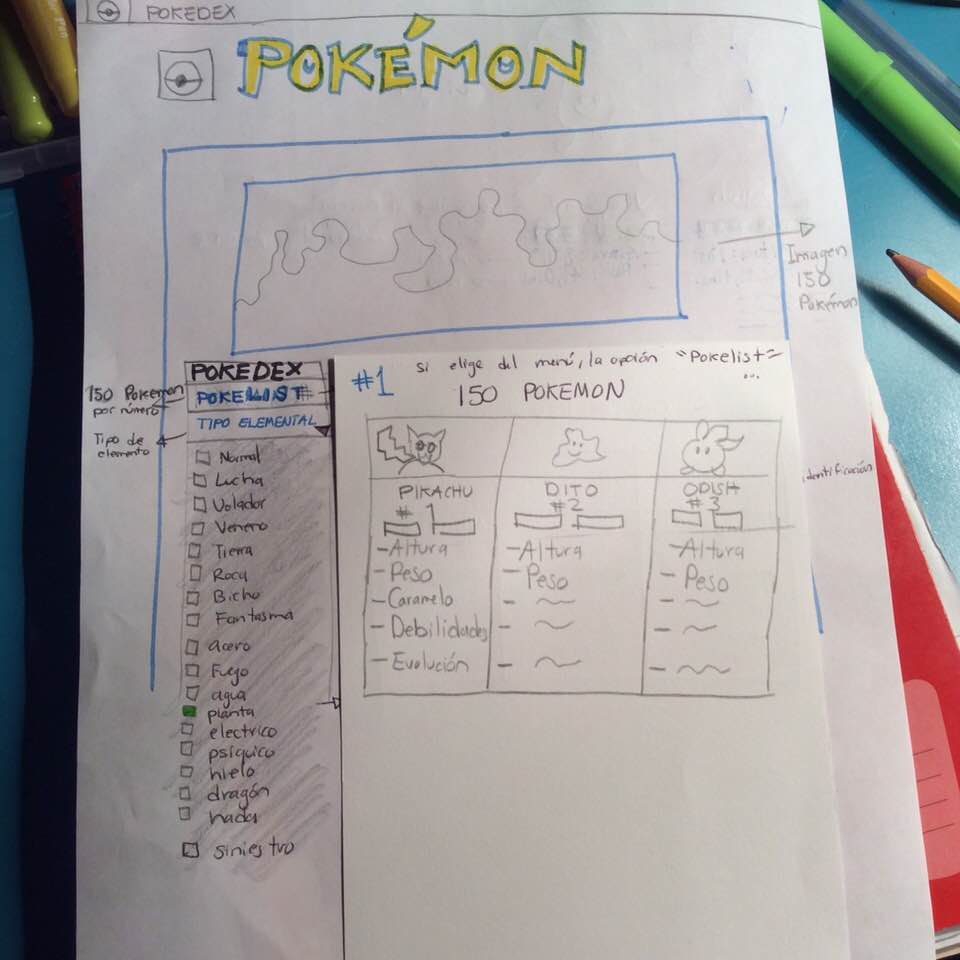 POKEDEX
POKÉMON
Imagen
150
Pokémon
POKEDEX
POKELIST #
TIPO ELEMENTAL
150 Pokemon
por número
Tipo de
elemento
Normal
Lucha
Volador
Veneno
Tierra
Roca
Bicho
Fantasma
acero
Fuego
agua
planta
electrico
psíquico
hielo
dragón
hada
siniestro
#1
si elige del menú, la opción "Pokelist"
...
150 POKEMON
PIKACHU
# 1
-Altura
-Peso
-Caramelo
-Debilidades
-Evolución
DITO
#2
-Altura
-Peso
ODISH
#3
-Altura
-Peso
identificación